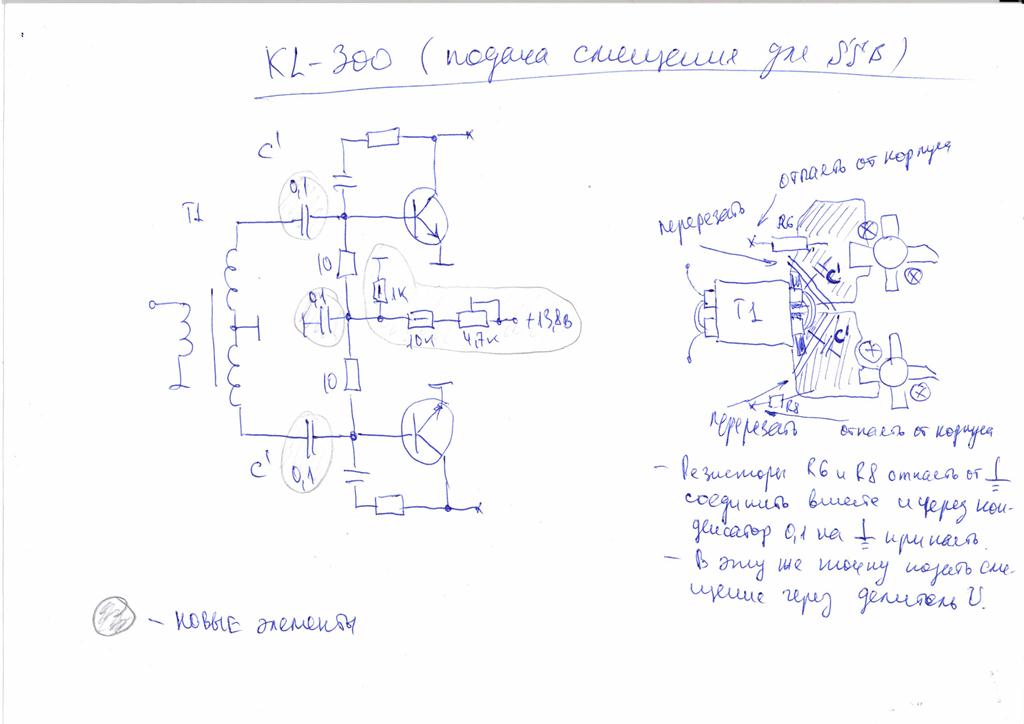 KL-300 (подача смещения для SSB)
C'
0,1
T1
10
1К
0,1
10К
4,7К
+13,8в
10
C'
0,1
- новые элементы
отпаять от корпуса
перерезать
R6
C'
T1
C'
R8
перерезать
отпаять от корпуса
- Резисторы R6 и R8 отпаять от ⏚
соединить вместе и через кон-
денсатор 0,1 на ⏚ припаять.
- В эту же точку подать сме-
щение через делитель U.